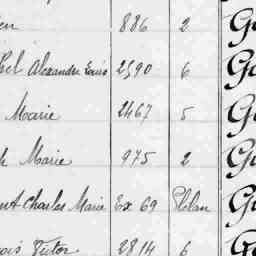 en 886 2 Ga
hel Alexandre Louis 2590 6 Ga
Marie 2467 5 Ga
h Marie 975 2 Ga
ent Charles Marie Ex 69 Plélan Ga
ois Victor 2814 6 Ga